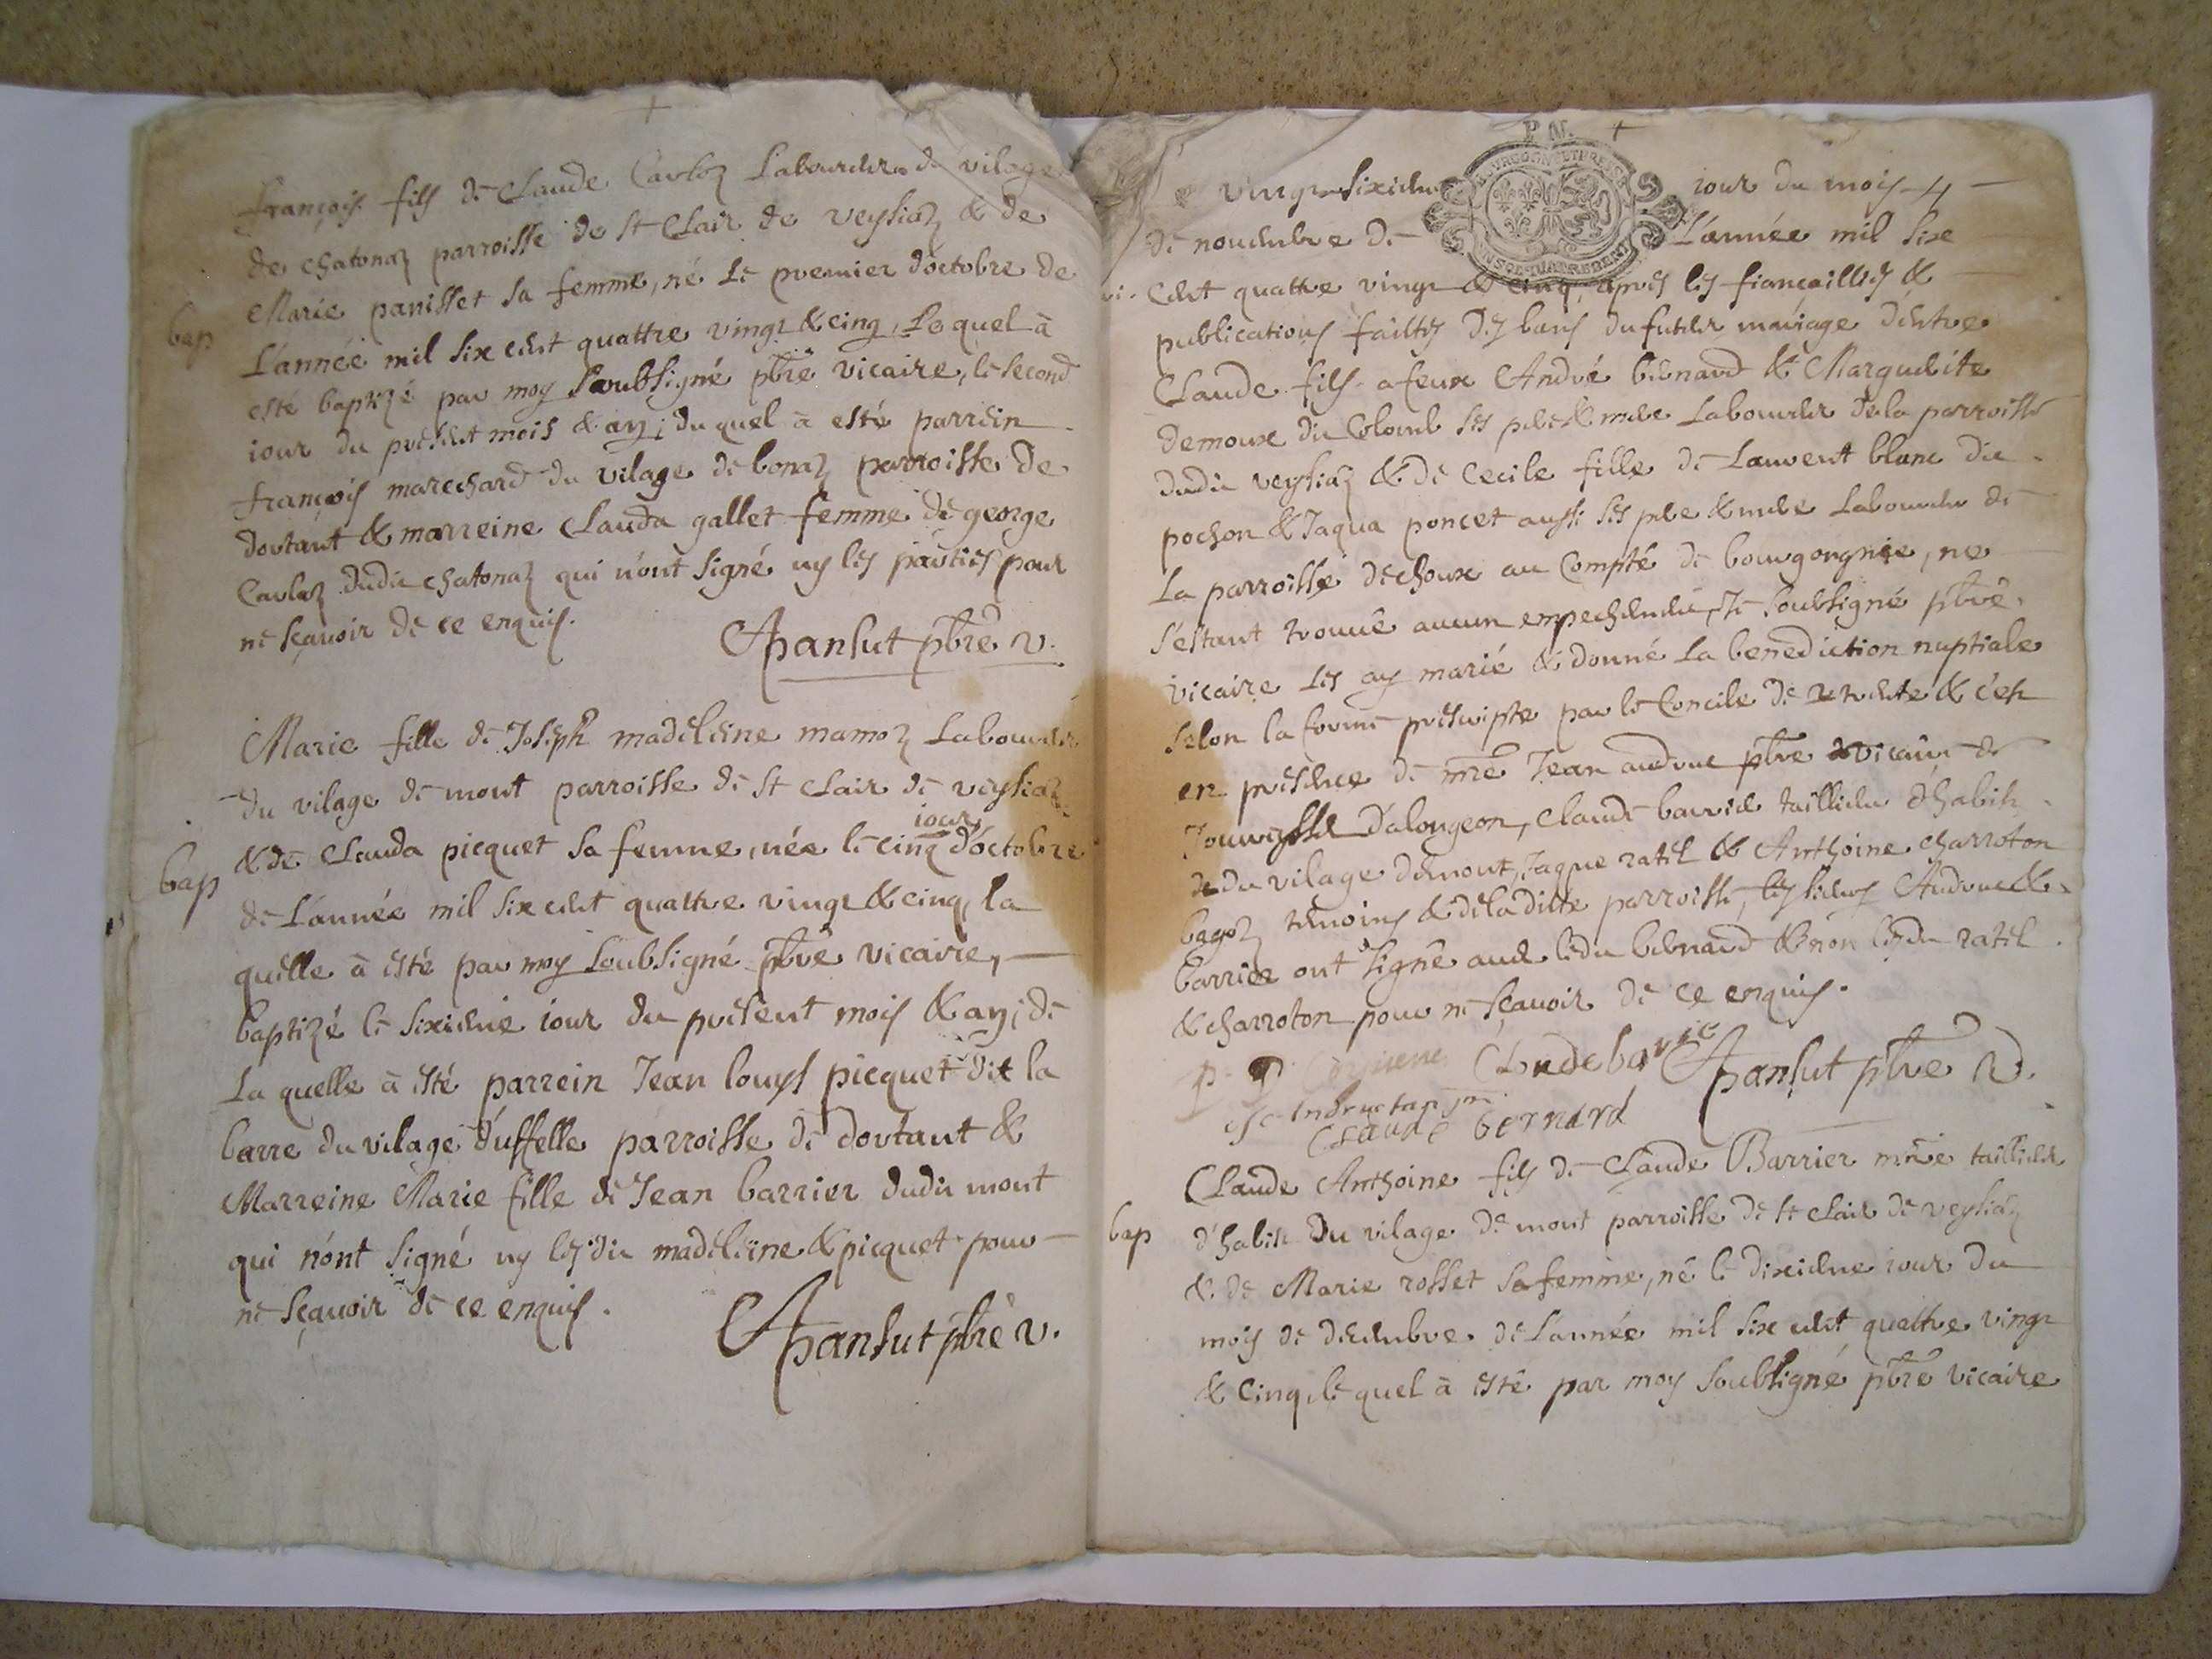 françois fils de Claude Carloz Laboureur du vilage
de chatonaz parroisse de st Clair de veysiaz & de
Marie panisset sa femme, né le premier doctobre de
bap
L'année mil six cent quattre vingt & cinq, le quel à
esté baptizé par moy soubsigné pbre vicaire, le second
iour du présent mois & an; du quel à esté parrein
françois marechard du vilage de bonaz parroisse de
dortant & marreine Clauda gallet femme de george
Carloz dudit chatonaz qui n'ont signé ny les parties pour
ne sçavoir de ce enquis.
pansut pbre v.
Marie fille de Joseph madeleine mamoz Laboureur
du vilage de mont parroisse de st clair de veysiaz
iour
bap
& de Clauda picquet sa femme, née le cinq d'octobre
de L'année mil six cent quattre vingt & cinq, la
quelle à esté par moy soubsigné pbre vicaire,
baptizé le sixieme iour du présent mois & an; de
La quelle à esté parrein Jean louys picquet dit la
barre du vilage d'uffelle parroisse de dortant &
Marreine Marie fille de Jean barrier dudit mont
qui n'ont signé ny lesdit madeleine & picquet pour
ne sçavoir de ce enquis.
pansut pbre v.
P M. +
vingt sixieme iour du mois
de novembre de L'année mil six
cent quattre vingt & cinq, apres les fiançailles &
publications faittes des bans du futeur mariage d'entre
Claude fils a feux André bernard & Marguerite
demoux dit Colomb ses pere & mere Laboureur de la parroisse
dudit veysiaz & de Cecile fille de Laurent blanc dit
pochon & Jaqua poncet aussi ses pere & mere Laboureur de
La parroisse de choux au Compté de bourgongnie, ne
s'estant trouvé aucun empechement, Je soubsigné pbre
vicaire les ay marié & donné la benediction nuptiale
selon la forme prescripte par le Concile de trente & c'est
en présence de mre Jean andruc pbre vicaire de
d'alongeon, claude barrier taillieur d'habit
du vilage demont, Jaque ratel & Anthoine charroton
bagoz temoins & de la ditte parroisse, les sieurs Andruc &
barrier ont signé avec ledit bernard & non lesdit ratel
& charroton pour ne sçavoir de ce enquis.
Clude barie
pansut pbre v.
Claude bernard
Claude Anthoine fils de Claude Barrier mre taillieur
bap
d'habit du vilage de mont parroisse de st clair de veysiaz
& de Marie rosset sa femme, né le dixieme iour du
mois de decembre de L'année mil six cent quattre vingt
& cinq, le quel à esté par moy soubsigné pbre vicaire